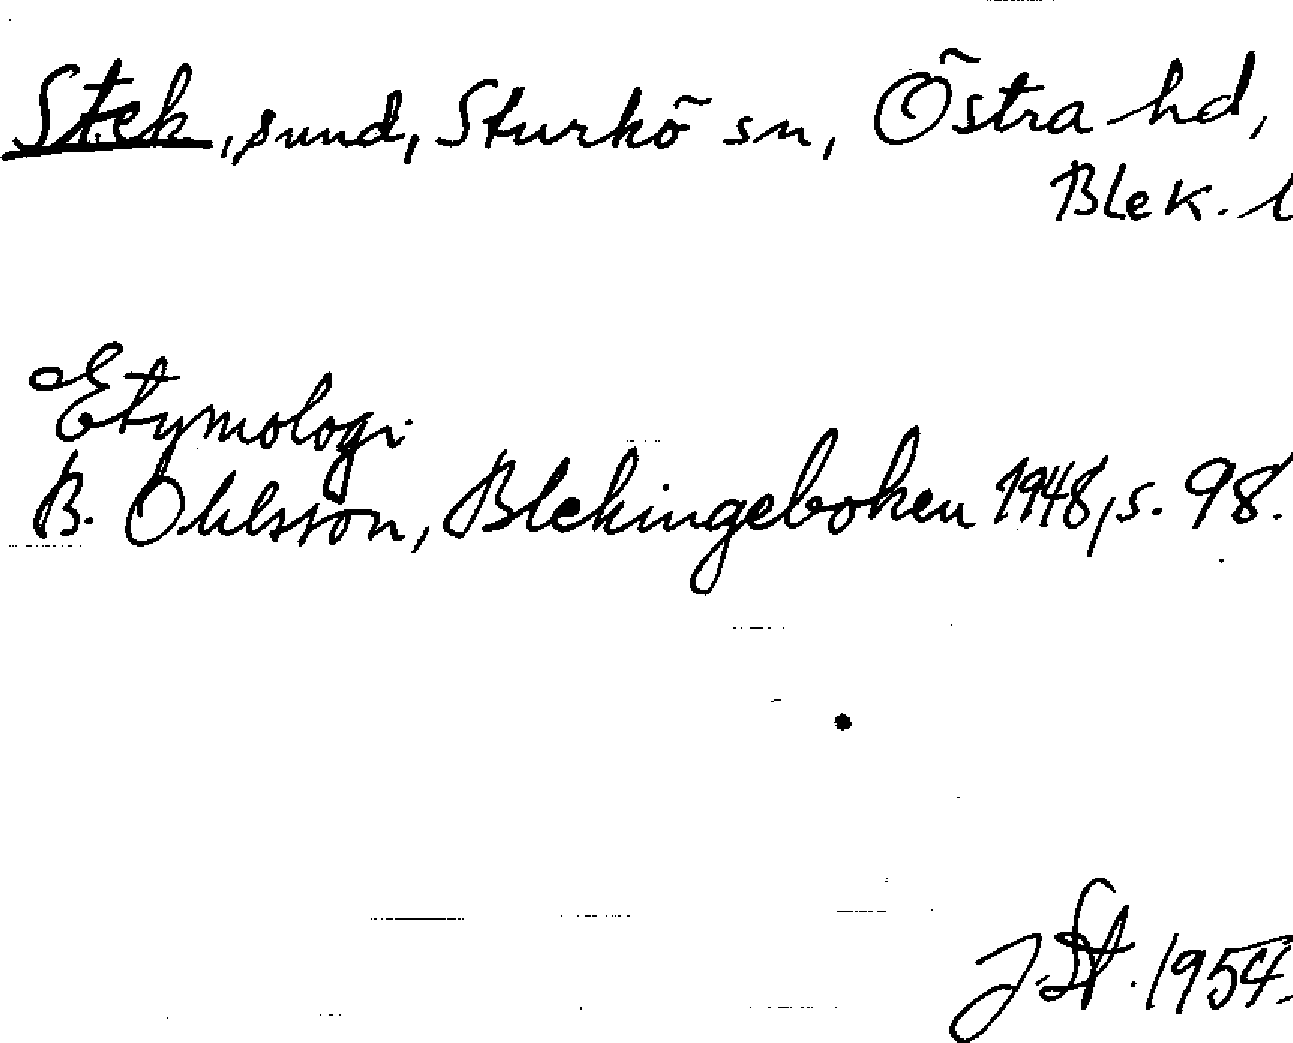 Stek, sund, Sturkö sn, Östra hd,
Blek. l
Etymologi
B. Ohlsson, Blekingeboken 1948, s. 98.
J. St. 1954.